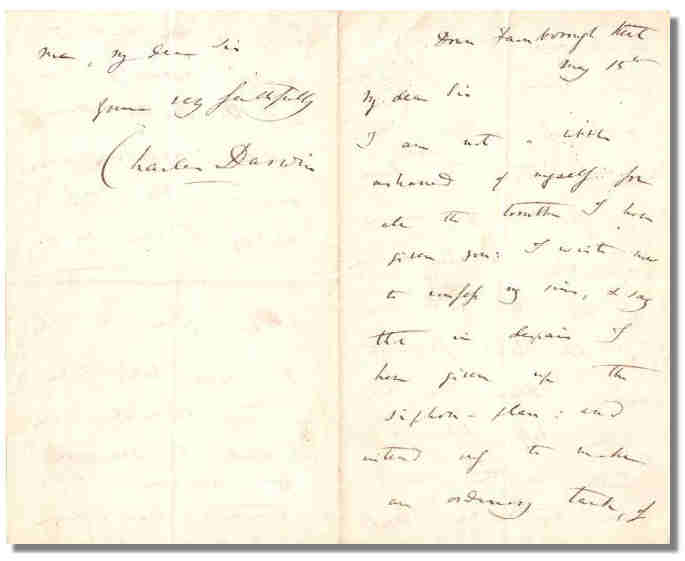 Down Farnborough Kent
May 15th
My dear Sir
I am not a little
ashamed of myself for
all the trouble I have
given you: I write now
to confess my sins, & say
that in despair I
have given up the
siphon-plan: and
intend only to make
an ordinary tank, of
me, my dear Sir
Yours very faithfully
Charles Darwin